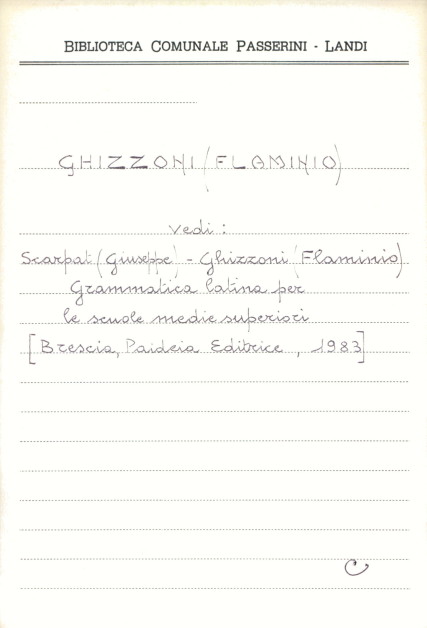 BIBLIOTECA COMUNALE PASSERINI - LANDI
GHIZZONI (FLAMINIO)
Vedi :
Scarpat (Giuseppe) - Ghizzoni (Flaminio)
Grammatica latina per
le scuole medie superiori
[Brescia, Paideia Editrice, 1983]
C